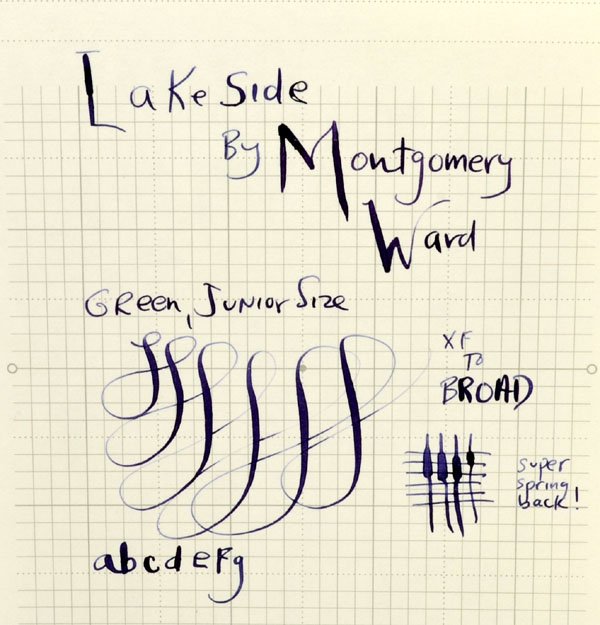 Lake Side
By Montgomery
Ward
Green, Junior Size
XF
To
BROAD
super
spring
back!
abcdefg